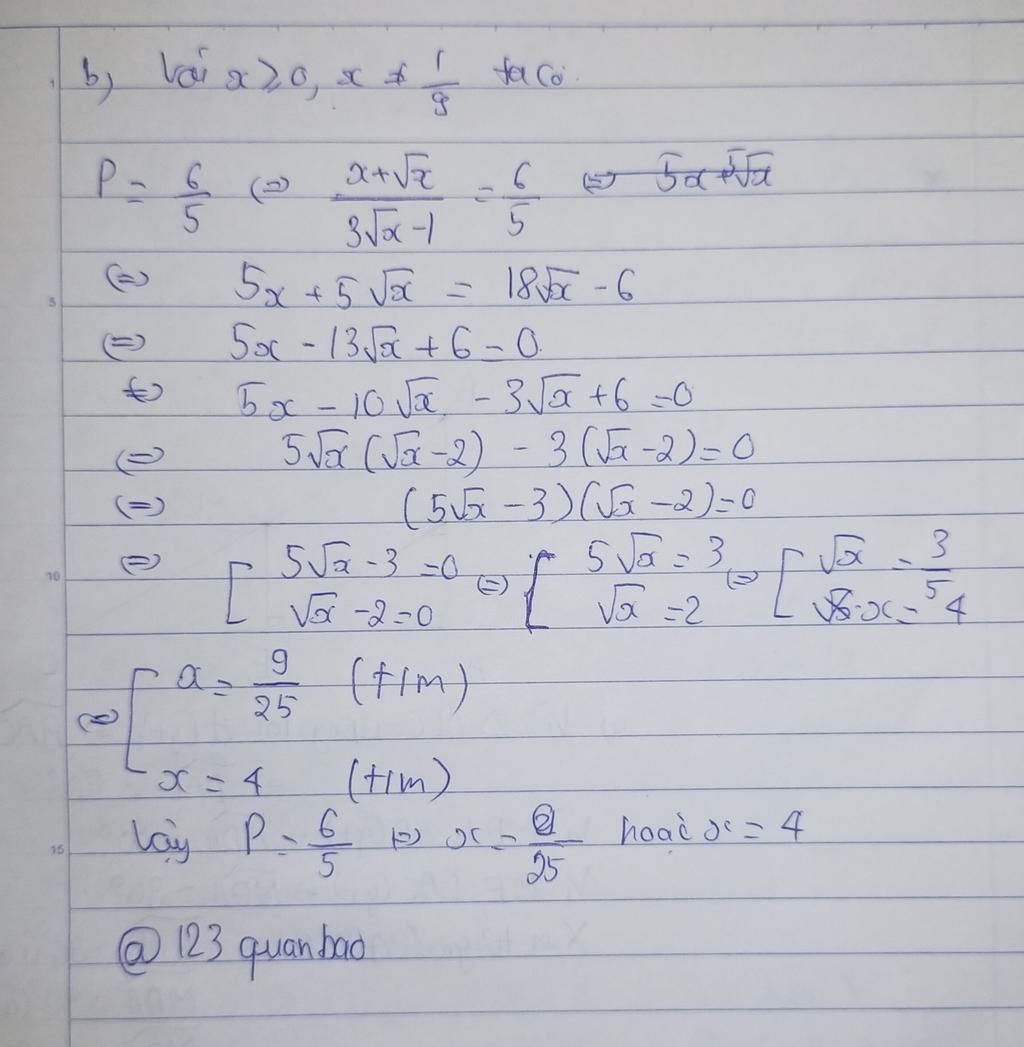 b) Với x ≥ 0, x ≠ 1/9 ta có
P = 6/5 (=) (x+√x)/(3√x-1) = 6/5 (=) 5x+5√x
(=) 5x + 5√x = 18√x - 6
(=) 5x - 13√x + 6 = 0
(=) 5x - 10√x - 3√x + 6 = 0
(=) 5√x(√x-2) - 3(√x-2) = 0
(=) (5√x-3)(√x-2) = 0
(=) [ 5√x-3 = 0 (=) [ 5√x = 3 (=) [ √x = 3/5
√x-2 = 0 √x = 2 x = 4
(=) [ x = 9/25 (t/m)
x = 4 (t/m)
Vậy P = 6/5 (=) x = 9/25 hoặc x = 4
@ 123 quanbao